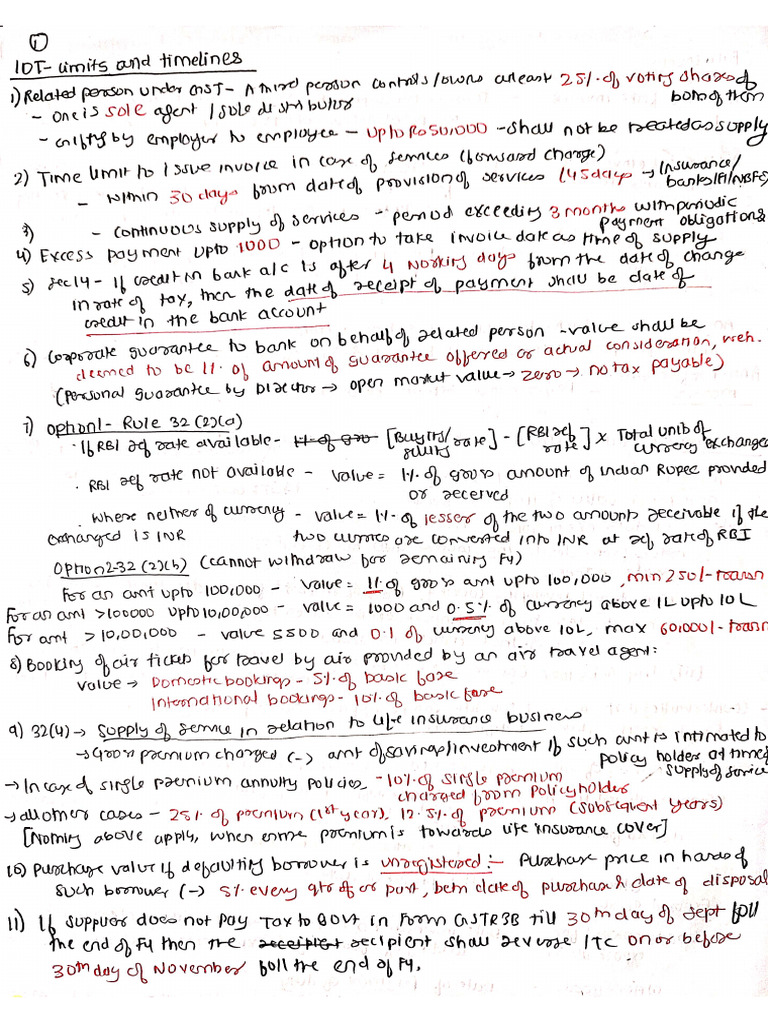 ①
IDT- limits and timelines
1) Related person under GST- A third person controls/owns atleast 25% of voting shares of both of them
- one is sole agent / sole distributor
- Gifts by employer to employee - upto Rs 50,000 - shall not be treated as supply
2) Time limit to issue invoice in case of services (forward charge)
- within 30 days from date of provision of services (45 days → Insurance/ banks/FI/NBFC)
3) - continuous supply of services - period exceeding 3 months with periodic payment obligations
4) Excess payment upto 1000 - option to take invoice date as time of supply
5) Sec 14 - If credit in bank a/c is after 4 working days from the date of change
in rate of tax, then the date of receipt of payment shall be date of
credit in the bank account
6) Corporate guarantee to bank on behalf of related person - value shall be
deemed to be 1% of amount of guarantee offered or actual consideration, w.e.h.
(Personal guarantee by Director → open market value → zero → no tax payable)
7) option 1 - Rule 32 (2)(a)
. If RBI ref rate available - 1% of gro [Buying/ selling rate] - [RBI ref rate] x Total units of currency exchanged
. RBI ref rate not available - value = 1% of gross amount of Indian Rupee provided
or received
. where neither of currency - value = 1% of lesser of the two amounts receivable if the
exchanged is INR two curries are converted into INR at ref rate of RBI
Option 2-32 (2)(b) (cannot withdraw for remaining FY)
For an amt upto 100,000 - value = 1% of gross amt upto 100,000, min 250/- transn
For an amt >100000 upto 10,00,000 - value = 1000 and 0.5% of currency above 1L upto 10L
For amt >10,00,000 - value 5500 and 0.1 of currency above 10L, max 60,000/- transn
8) Booking of air tickets for travel by air provided by an air travel agent:
value → Domestic bookings - 5% of basic fare
International bookings - 10% of basic fare
9) 32(4) → Supply of service in relation to life insurance business
→ Gross premium charged (-) amt of savings/investment if such amt is intimated to
policy holder at time of supply of service
→ In case of single premium annuity policies - 10% of single premium
charged from policy holder
→ all other cases - 25% of premium (1st year), 12.5% of premium (subsequent years)
[Nothing above apply, when entire premium is towards life insurance cover]
10) Purchase value if defaulting borrower is unregistered :- Purchase price in hands of
such borrower (-) 5% every qtr of or part, betn date of purchase & date of disposal
11) If supplier does not pay Tax to Govt in Form GSTR3B till 30th day of Sept foll
the end of FY then the receipient recipient shall reverse ITC on or before
30th day of November foll the end of FY.